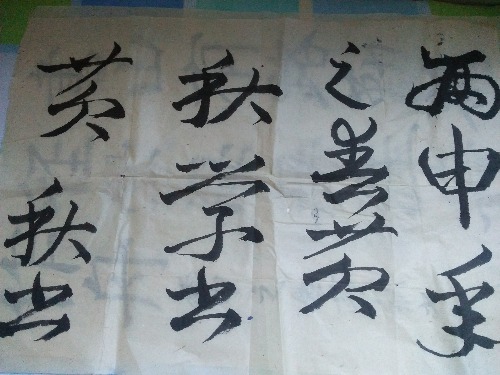 丙申年
之春黄
秋学书
黄秋书